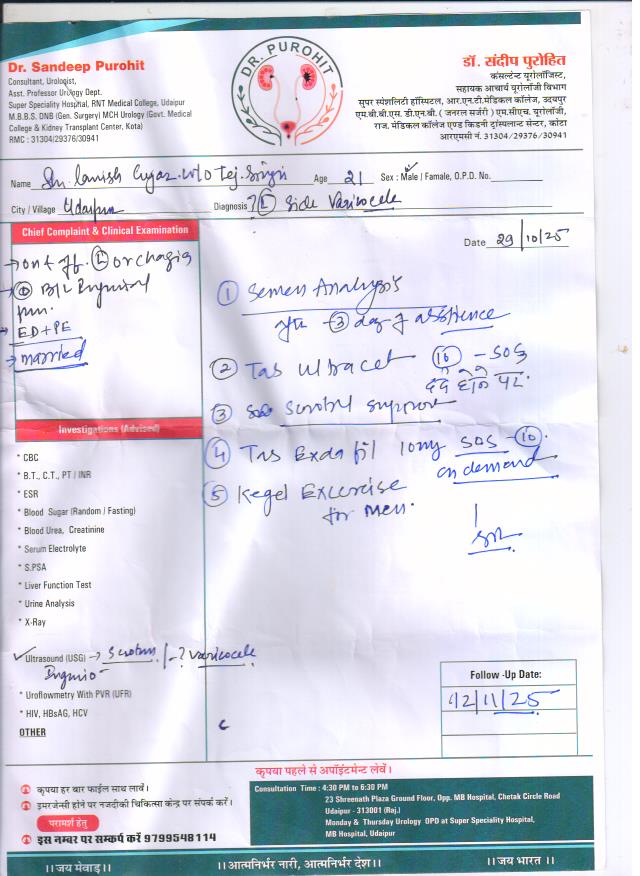 Dr. Sandeep Purohit
Consultant, Urologist,
Asst. Professor Urology Dept.
Super Speciality Hospital, RNT Medical College, Udaipur
M.B.B.S. DNB (Gen. Surgery) MCH Urology (Govt. Medical
College & Kidney Transplant Center, Kota)
RMC : 31304/29376/30941
DR. PUROHIT
डॉ. संदीप पुरोहित
कंसल्टेन्ट यूरोलॉजिस्ट,
सहायक आचार्य यूरोलॉजी विभाग
सुपर स्पेशलिटी हॉस्पिटल, आर.एन.टी.मेडिकल कॉलेज, उदयपुर
एम.बी.बी.एस. डी.एन.बी. ( जनरल सर्जरी ) एम.सीएच. यूरोलॉजी,
राज. मेडिकल कॉलेज एण्ड किडनी ट्रांसप्लान्ट सेन्टर, कोटा
आरएमसी नं. 31304/29376/30941
Name Age 21 Sex : Male / Famale, O.P.D. No.
City / Village Udaipur Diagnosis ? (L) Side Varicocele
Chief Complaint & Clinical Examination
Date 29/10/25
→ on & off (L) orchagia
B/L Inguinal
pain.
→ ED + PE
→ married
① Semen Analysis
③ day of abstinence
② Tab Ultracet (10) - SOS
दर्द होने पर.
③ Scrotal support
④ Tab 10mg SOS (10)
on demand
⑤ Kegel Excercise
for Men.
Investigations (Advised)
* CBC
* B.T., C.T., PT / INR
* ESR
* Blood Sugar (Random / Fasting)
* Blood Urea, Creatinine
* Serum Electrolyte
* S.PSA
* Liver Function Test
* Urine Analysis
* X-Ray
✓ Ultrasound (USG) → Scrotum / - ? Varicocele
Inguino -
* Uroflowmetry With PVR (UFR)
* HIV, HBsAG, HCV
OTHER
Follow -Up Date:
12/11/25
कृपया पहले से अपॉइंटमेन्ट लेवें।
कृपया हर बार फाईल साथ लावें।
इमरजेन्सी होने पर नजदीकी चिकित्सा केन्द्र पर संपर्क करें।
परामर्श हेतु
इस नम्बर पर सम्पर्क करें 9799548114
Consultation Time : 4:30 PM to 6:30 PM
23 Shreenath Plaza Ground Floor, Opp. MB Hospital, Chetak Circle Road
Udaipur - 313001 (Raj.)
Monday & Thursday Urology OPD at Super Speciality Hospital,
MB Hospital, Udaipur
।।जय मेवाड़।। ।।आत्मनिर्भर नारी, आत्मनिर्भर देश।। ।।जय भारत।।